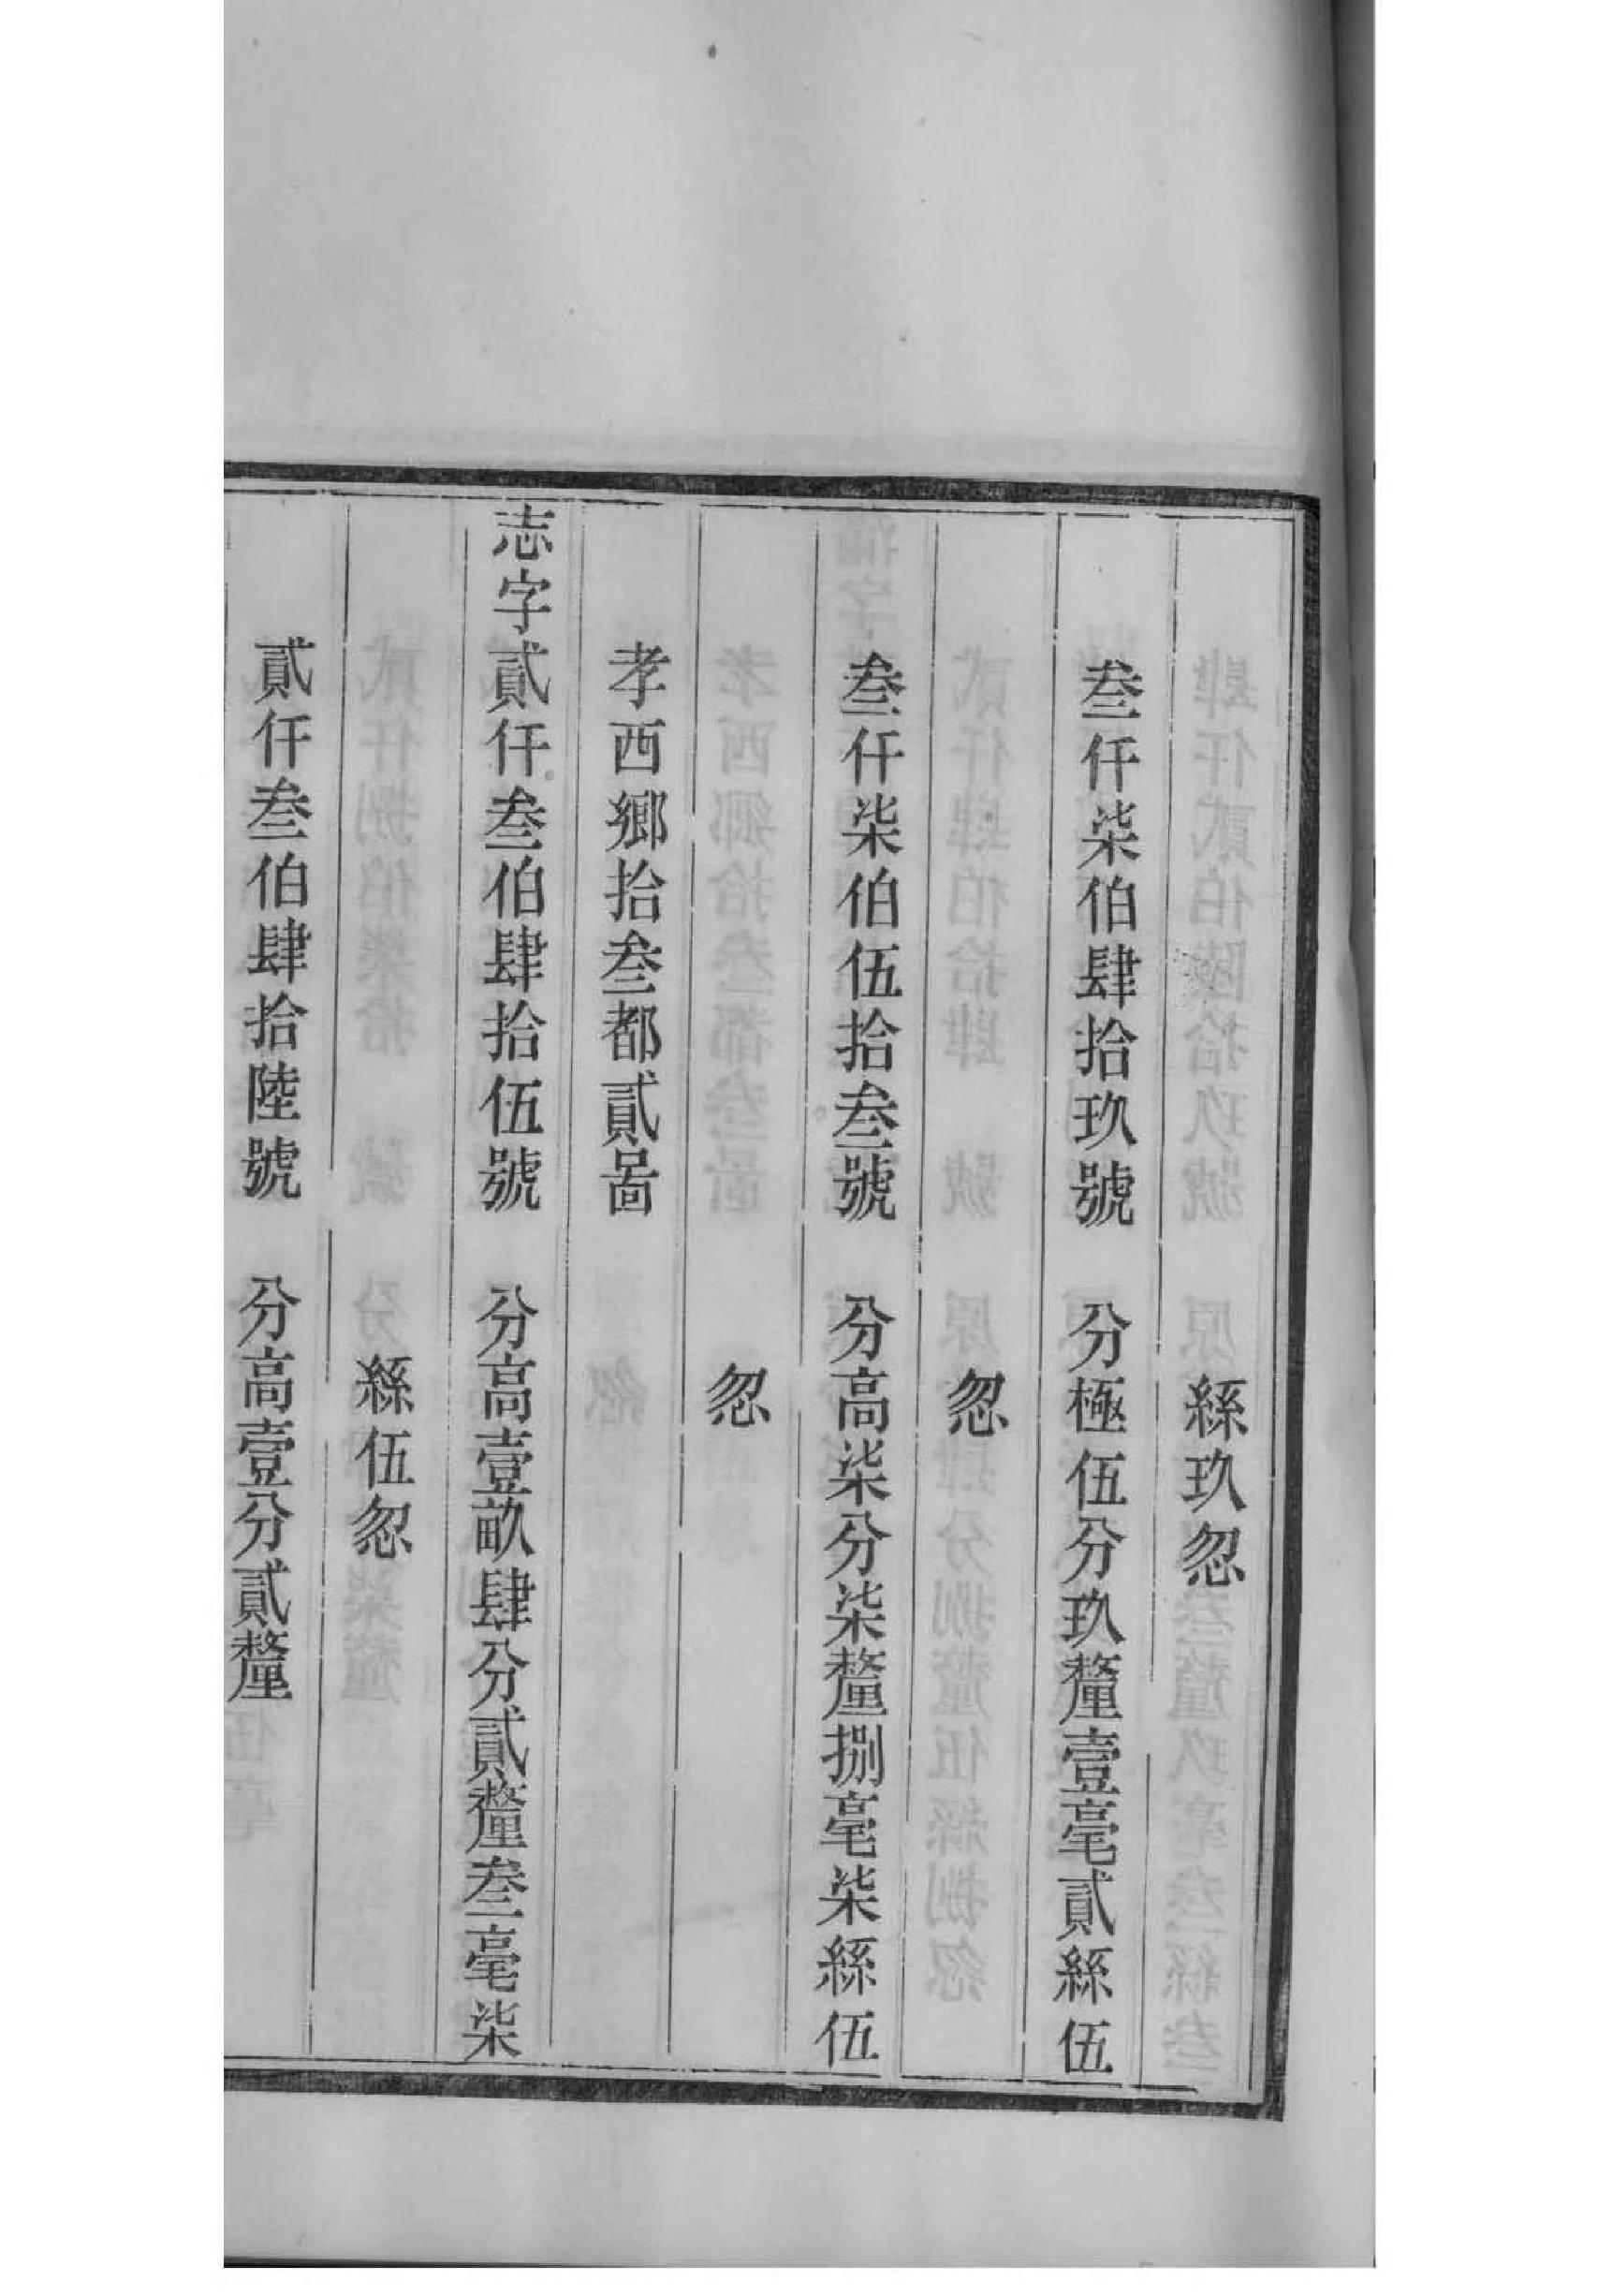 絲玖忽
叁仟柒伯肆拾玖號　分極伍分玖釐壹毫貳絲伍
忽
叁仟柒伯伍拾叁號　分高柒分柒釐捌毫柒絲伍
忽
孝西鄉拾叁都貳啚
志字貳仟叁伯肆拾伍號　分高壹畝肆分貳釐叁毫柒
絲伍忽
貳仟叁伯肆拾陸號　分高壹分貳釐